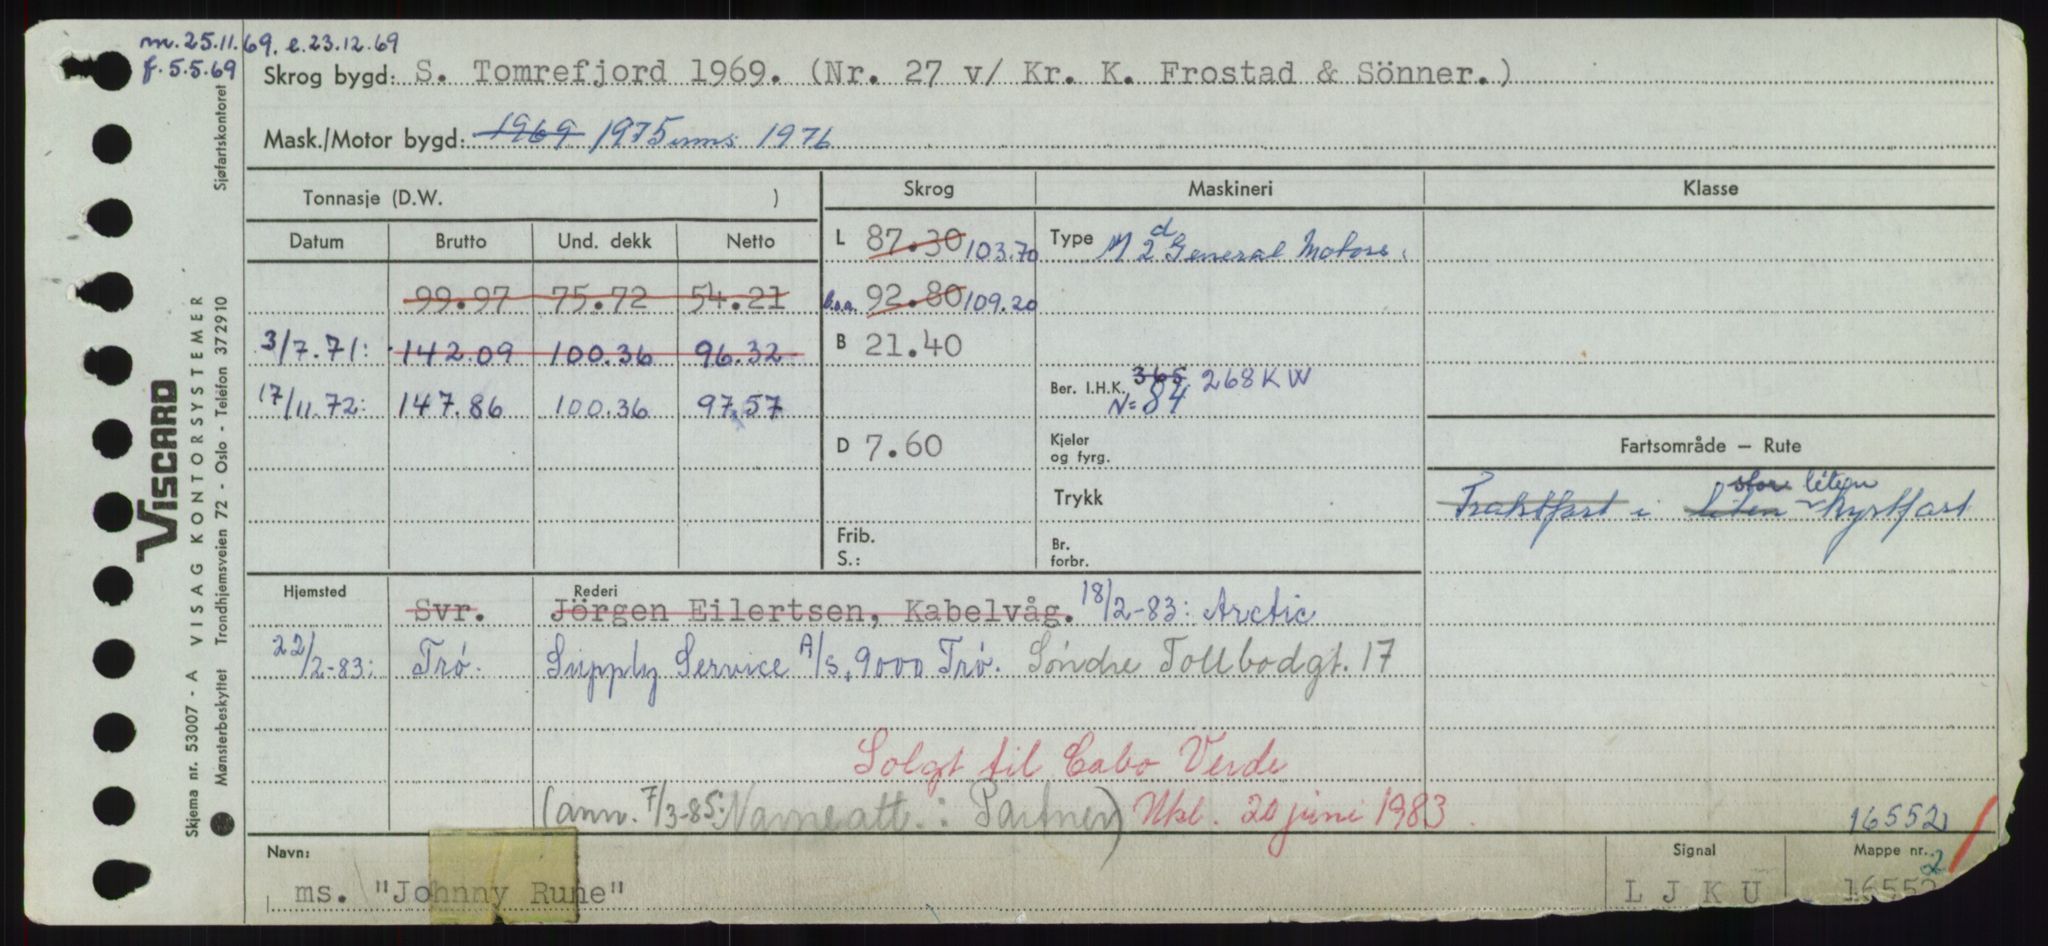 m. 25.11.69. e. 23.12.69
f. 5.5.69
Skrog bygd: S. Tomrefjord 1969. (Nr. 27 v/ Kr. K. Frostad & Sönner.)
Mask./Motor bygd: 1969 1975 inns 1976
Tonnasje (D.W. )
Skrog Maskineri Klasse
Datum Brutto Und. dekk Netto
L 87.30 103.70
Type M 2 d General Motors.
99.97 75.72 54.21
l.o.a. 92.80 109.20
3/7.71: 142.09 100.36 96.32
B 21.40
17/11.72: 147.86 100.36 97.57
Ber. I.H.K. 365 268 KW
N= 84
D 7.60
Kjeler og fyrg.
Fartsområde – Rute
Trykk
Fraktfart i liten store liten kystfart
Frib.
S.:
Br. forbr.
Hjemsted Rederi
Svr. Jörgen Eilertsen, Kabelvåg. 18/2-83: Arctic
22/2-83: Trø. Supply Service A/S, 9000 Trø. Søndre Tollbodgt. 17
Solgt til Cabo Verde
(ann. 7/3-85: Navneatt.: Partner) Nkl. 20 juni 1983.
16552
Navn: Signal Mappe nr.
2
ms. "Johnny Rune" L J K U 16552
Sjøfartskontoret
VISCARD
Skjema nr. 53007 - A VISAG KONTORSYSTEMER
Mønsterbeskyttet Trondhjemsveien 72 - Oslo - Telefon 372910